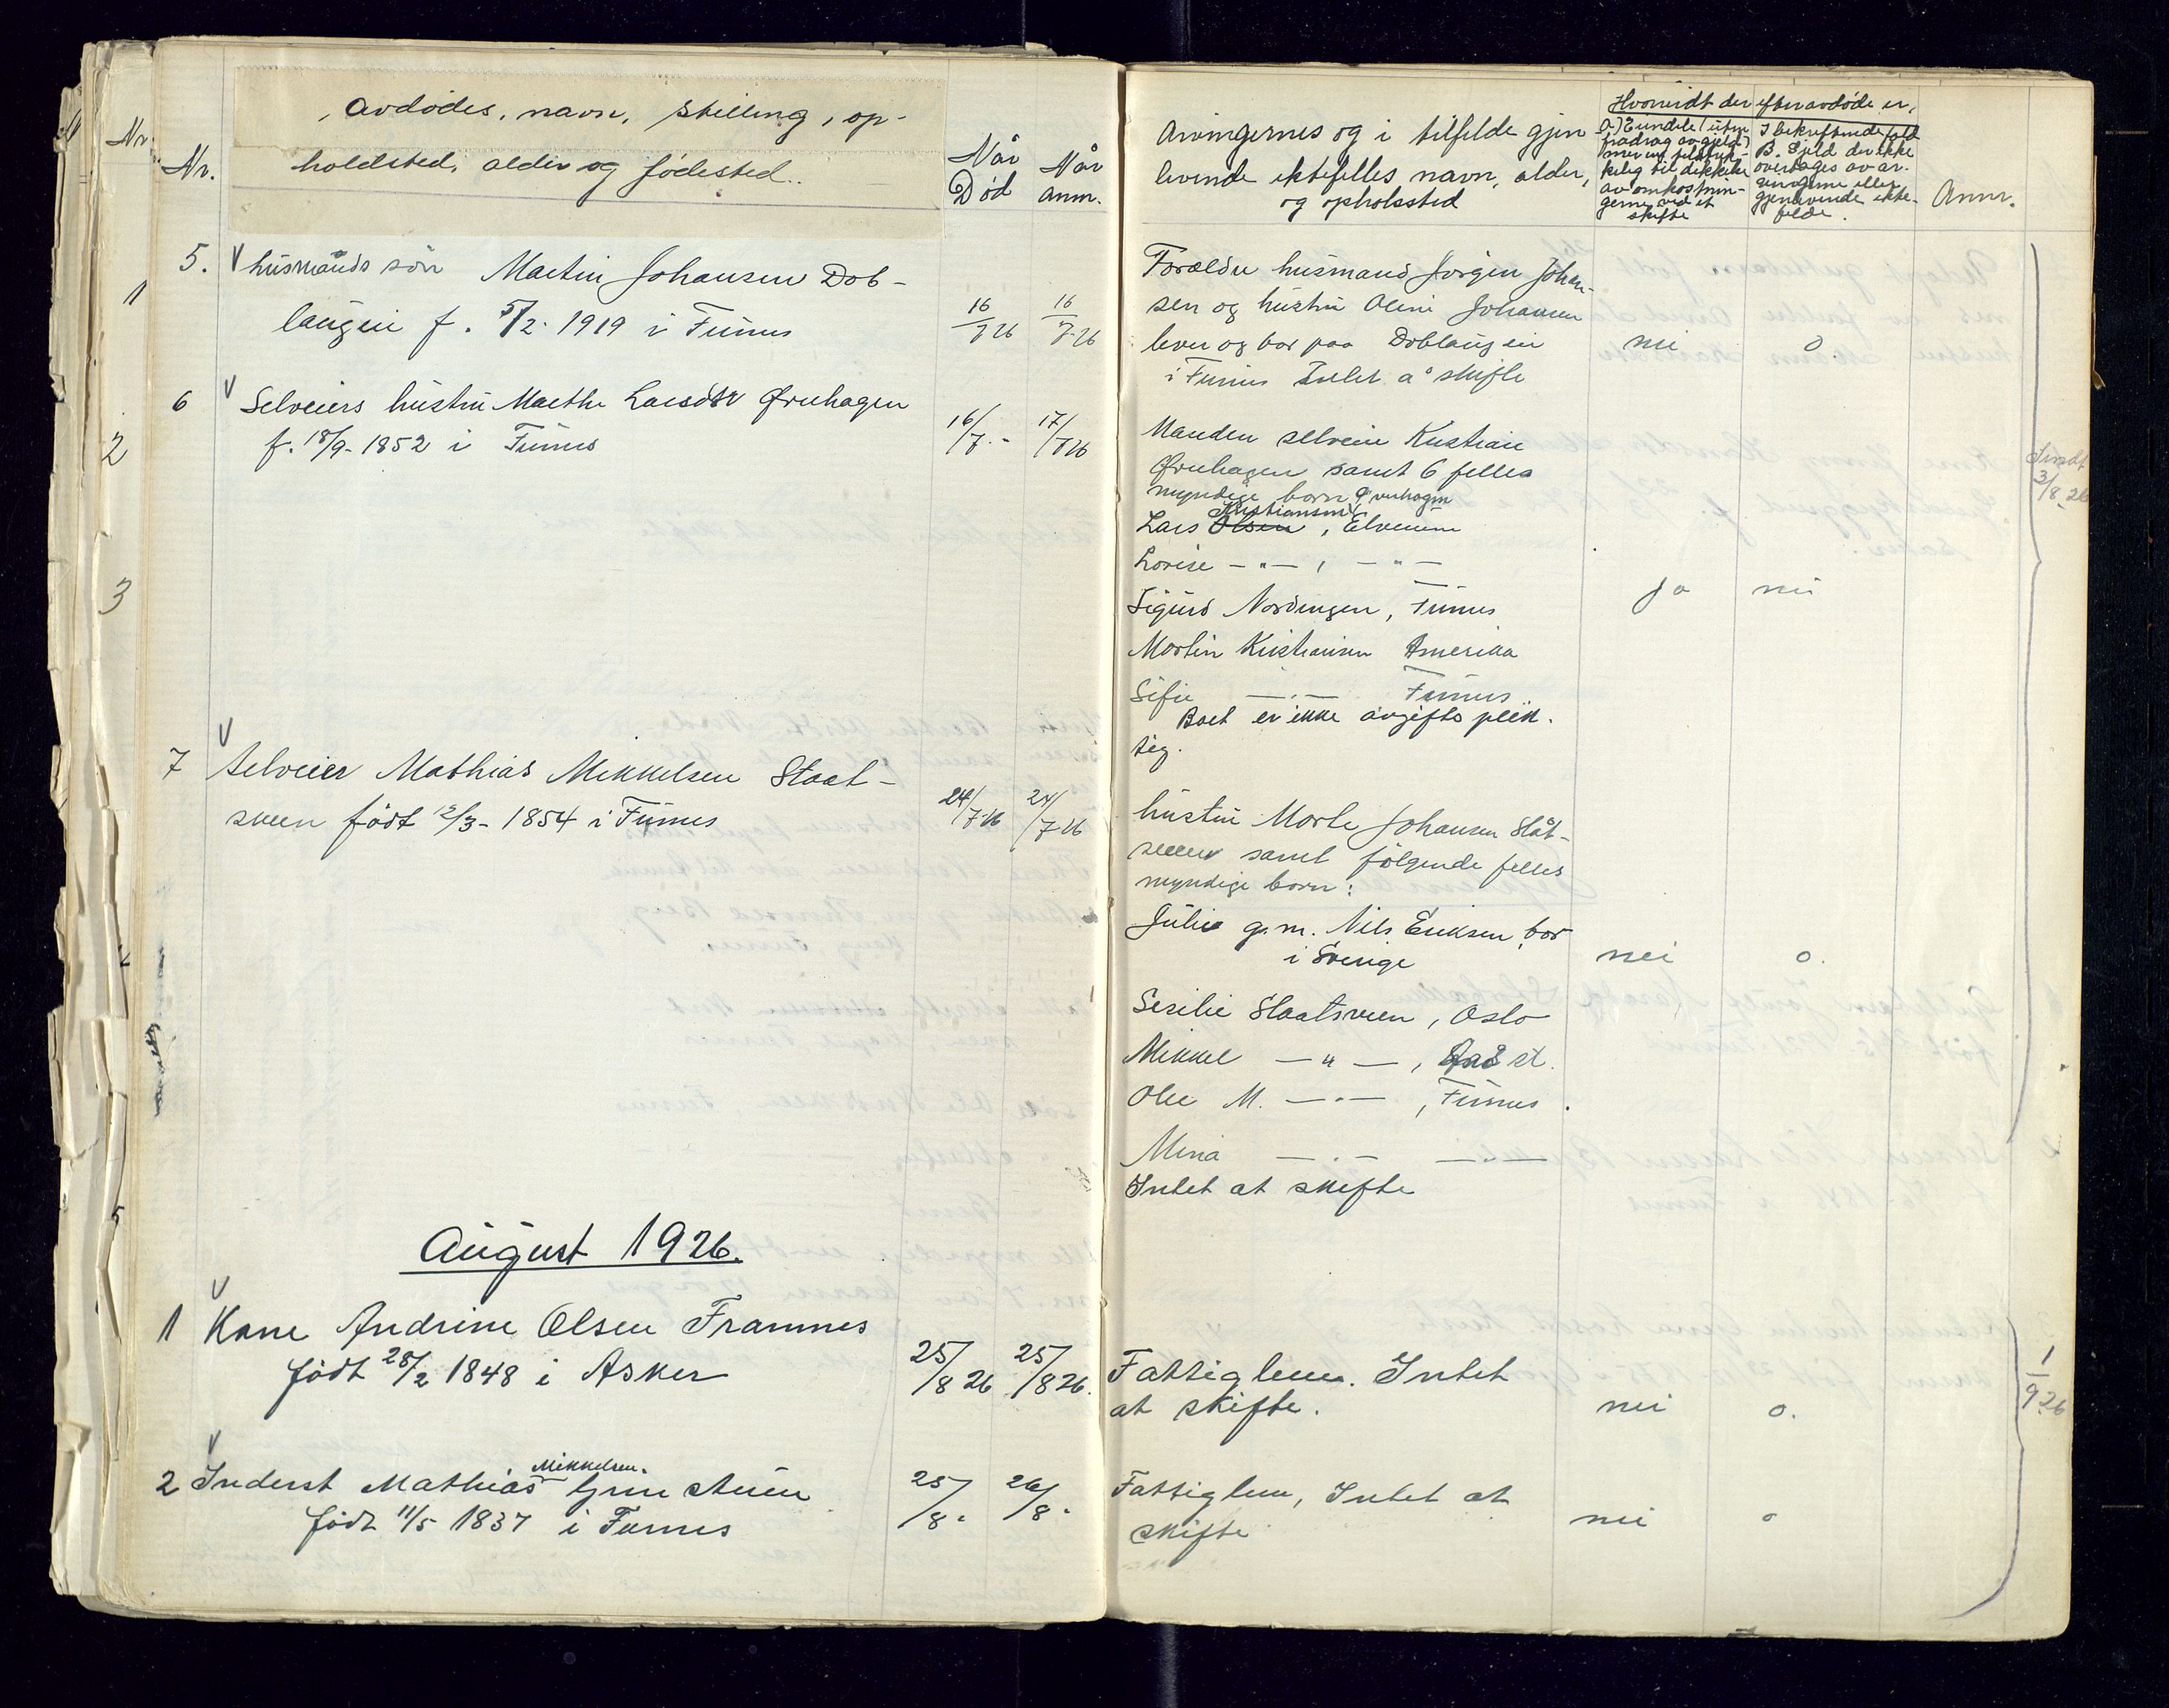 Nr.
Avdødes, navn, stilling, op-
holdsted, alder og fødested.
Når
Død
Når
anm.
Arvingernes og i tilfelde gjen
levende ektefelles navn, alder,
og opholssted
Hvorvidt der efter avdøde er,
A) Eiendele (uten
fradrag av gjeld)
mer en tilstræk-
kelig til dekkelse
av omkostnin-
gerne ved et
skifte
I bekreftende fald
B. Gjeld der ikke
overtages av ar-
gjenlevende ekte-
felde.
Anm.
5. V husmands søn Martin Johansen Dob-
laugeie f. 5/2- 1919 i Furnes
16/7 26
16/7-26
Forældre husmand Jørgen Johan-
sen og hustru Oline Johansen
lever og bor paa Doblaugeie
i Furnes Intet å skifte
nei
0.
6 V Selveiers hustru Marthe Larsdtr Øruhagen
f. 18/9- 1852 i Furnes
16/7 - "
17/7 26
Manden selveier Kristian
Øruhagen samt 6 felles
myndige barn Øruhagen
Kristiansen
Lars Olsen, Elverum
Lovise — " — , — " —
Sigurd Nordengen, Furnes
Martin Kristiansen Amerika
Sifie — " — Furnes
Boet er ikke avgifts plik-
tig.
Ja
nei
Sendt
3/8.26
7 V Selveier Mathias Mikkelsen Staat-
sveen født 12/3- 1854 i Furnes
24/7 26
24/7 26
hustru Marte Johansen Slåt-
sveen samt følgende felles
myndige barn:
Julie g.m. Nils Eriksen, bor
i Sverige
nei
0.
Serilie Slaatsveen, Oslo
Mikkel — " — , st.
Ole M. — " — , Furnes.
Mina — " — — " —
Intet at skifte
August 1926.
1 V Kone Andrine Olsen Framnes
født 28/2 1848 i Asker
25/8 26
25/8 26.
Fattiglem. Intet
at skifte.
nei
0.
1/9 26
Mikkelsen.
2 V Inderst Mathias
født 11/5 1837 i Furnes
25/8 "
26/8 "
Fattiglem, Intet at
skifte
nei
0
Nr.
1
2
3
5